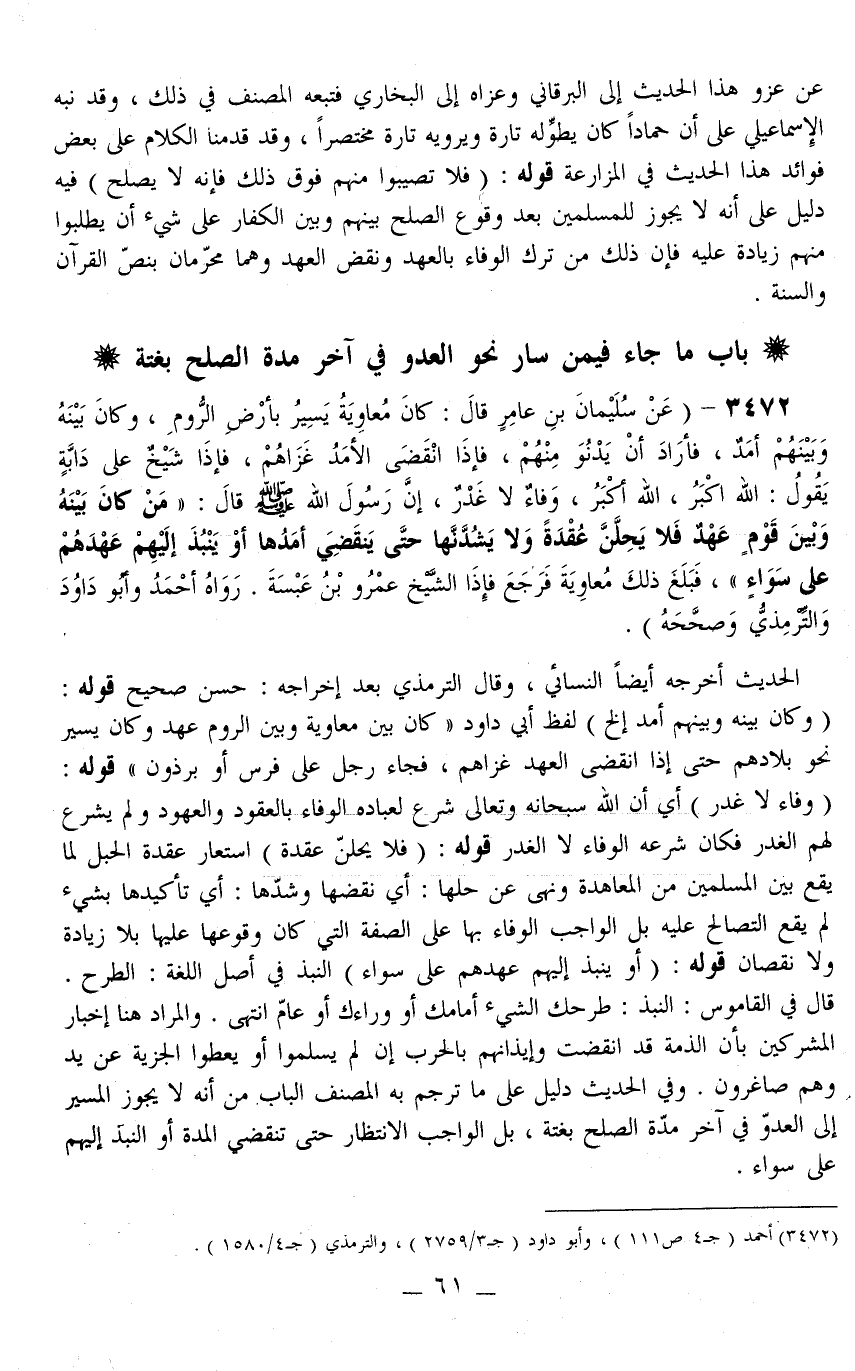 عن عزو هذا الحديث إلى البرقاني وعزاه إلى البخاري فتبعه المصنف في ذلك ، وقد نبه
الإسماعيلي على أن حماداً كان يطوِّله تارة ويرويه تارة مختصراً ، وقد قدمنا الكلام على بعض
فوائد هذا الحديث في المزارعة قوله : ( فلا تصيبوا منهم فوق ذلك فإنه لا يصلح ) فيه
دليل على أنه لا يجوز للمسلمين بعد وقوع الصلح بينهم وبين الكفار على شيء أن يطلبوا
منهم زيادة عليه فإن ذلك من ترك الوفاء بالعهد ونقض العهد وهما محرّمان بنصّ القرآن
والسنة .
باب ما جاء فيمن سار نحو العدو في آخر مدة الصلح بغتة
٣٤٧٢ – ( عَنْ سُلَيْمانَ بنِ عامِرٍ قالَ : كانَ مُعاوِيَةُ يَسِيرُ بأرْضِ الرُّومِ ، وكانَ بَيْنَهُ
وَبَيْنَهُمْ أمَدٌ ، فأرَادَ أنْ يَدْنُوَ مِنْهُمْ ، فإذَا انْقَضَى الأمَدُ غَزَاهُمْ ، فإذَا شَيْخٌ على دَابَّةٍ
يَقُولُ : الله اكْبَرُ ، الله أكْبَرُ ، وَفاءٌ لا غَدْرٌ ، إنَّ رَسُولَ الله ﷺ قالَ : « مَنْ كانَ بَيْنَهُ
وَبْينَ قَوْمٍ عَهْدٌ فَلا يَحِلَّنَّ عُقْدَةً وَلا يَشُدَّنَّها حتَّى يَنقَضِيَ أمَدُها أوْ يَنْبُذَ إلَيْهِمْ عَهْدَهُمْ
على سَوَاءٍ » ، فَبَلَغَ ذلكَ مُعاوِيَةَ فَرَجَعَ فإذَا الشَّيْخ عمْرُو بْنُ عَبْسَةَ . رَوَاهُ أحْمَدُ وأبُو دَاوُدَ
وَالتِّرْمِذيُّ وَصحَّحَهُ ) .
الحديث أخرجه أيضاً النسائي ، وقال الترمذي بعد إخراجه : حسن صحيح قوله :
( وكان بينه وبينهم أمد إلخ ) لفظ أبي داود « كان بين معاوية وبين الروم عهد وكان يسير
نحو بلادهم حتى إذا انقضى العهد غزاهم ، فجاء رجل على فرس أو برذون » قوله :
( وفاء لا غدر ) أي أن الله سبحانه وتعالى شرع لعباده الوفاء بالعقود والعهود ولم يشرع
لهم الغدر فكان شرعه الوفاء لا الغدر قوله : ( فلا يحلنّ عقدة ) استعار عقدة الحبل لما
يقع بين المسلمين من المعاهدة ونهى عن حلها : أي نقضها وشدّها : أي تأكيدها بشيء
لم يقع التصالح عليه بل الواجب الوفاء بها على الصفة التي كان وقوعها عليها بلا زيادة
ولا نقصان قوله : ( أو ينبذ إليهم عهدهم على سواء ) النبذ في أصل اللغة : الطرح .
قال في القاموس : النبذ : طرحك الشيء أمامك أو وراءك أو عامّ انتهى . والمراد هنا إخبار
المشركين بأن الذمة قد انقضت وإيذانهم بالحرب إن لم يسلموا أو يعطوا الجزية عن يد
وهم صاغرون . وفي الحديث دليل على ما ترجم به المصنف الباب من أنه لا يجوز المسير
إلى العدوّ في آخر مدّة الصلح بغتة ، بل الواجب الانتظار حتى تنقضي المدة أو النبذ إليهم
على سواء .
(٣٤٧٢) أحمد ( جـ٤ ص١١١ ) ، وأبو داود ( جـ٢٧٥٩/٣ ) ، والترمذي ( جـ١٥٨٠/٤ ) .
– ٦١ –